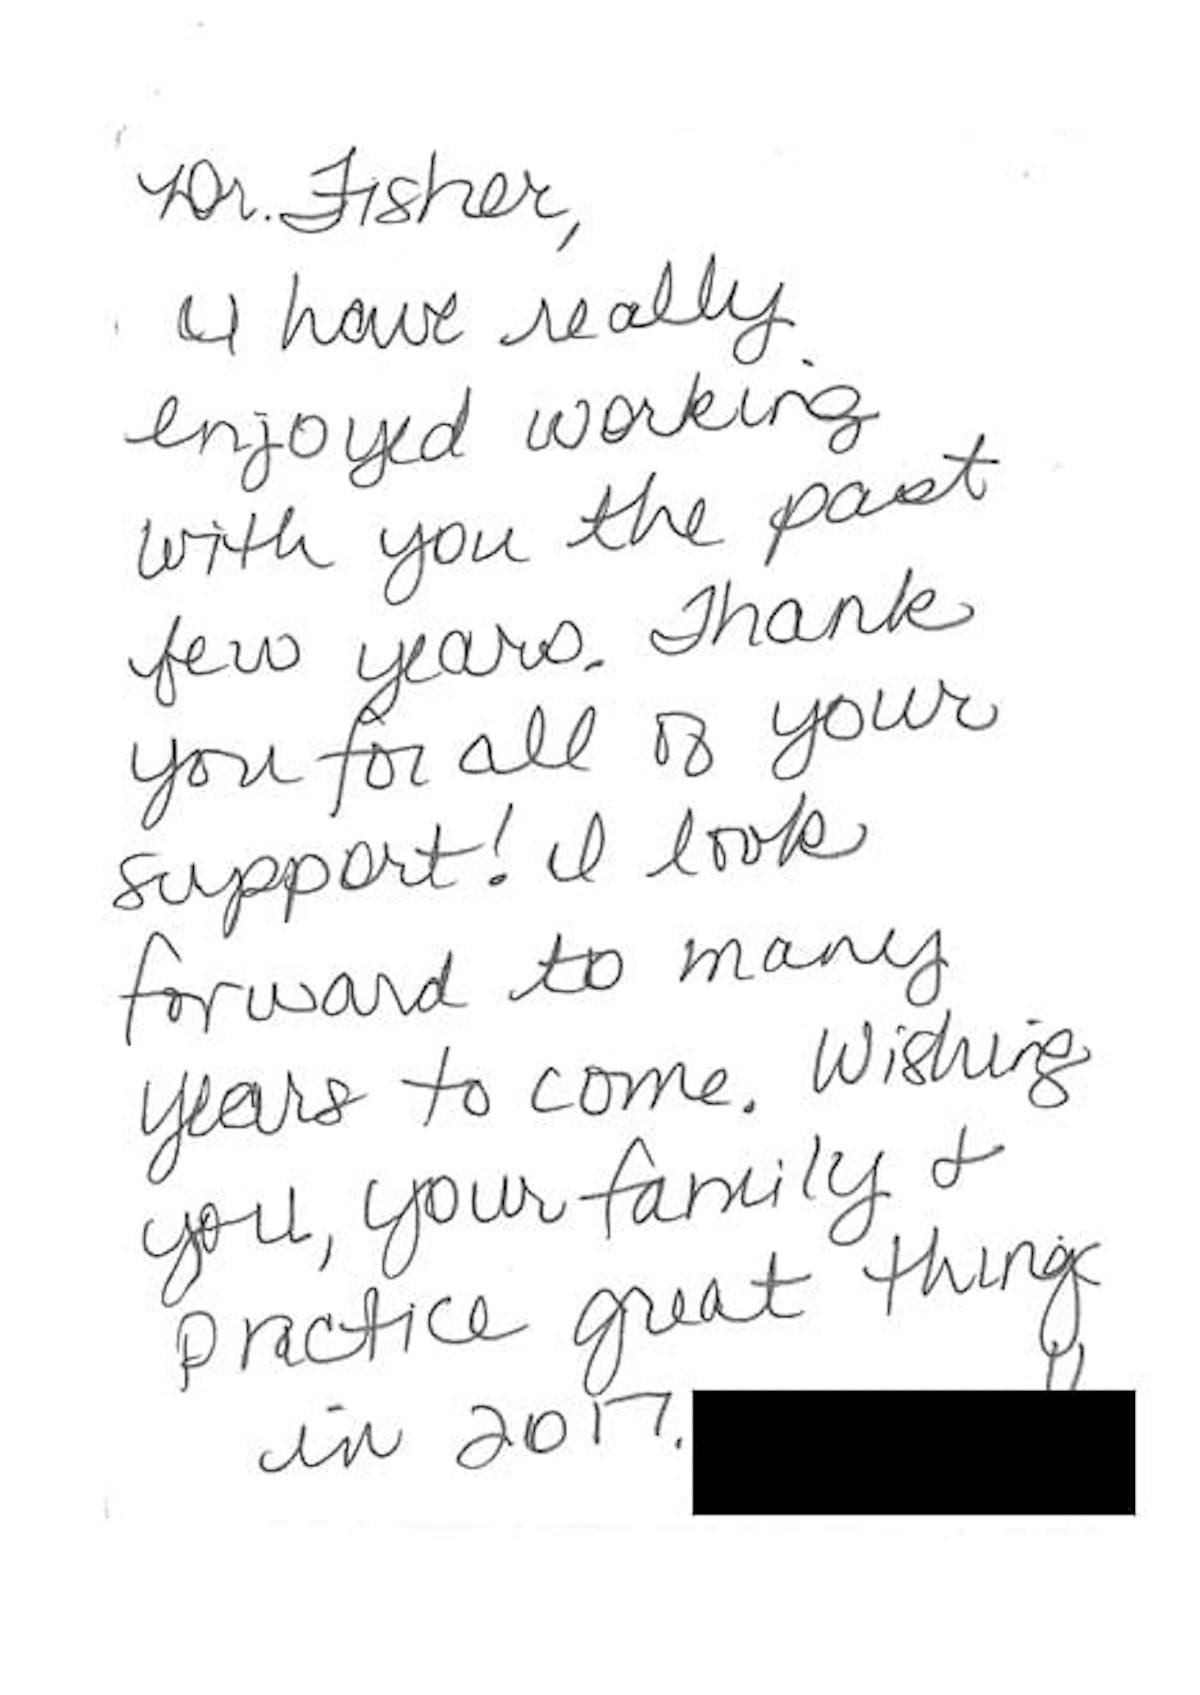 Dr. Fisher,
I have really
enjoyed working
with you the past
few years. Thank
you for all of your
support! I look
forward to many
years to come. Wishing
you, your family &
practice great things
in 2017.